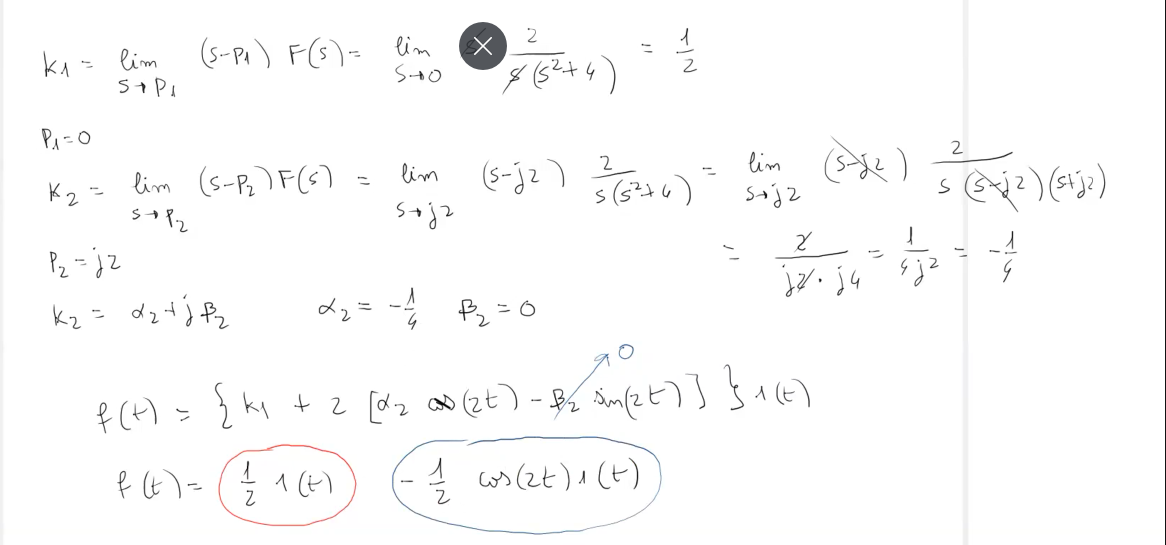 K1 = lim s→P1 (s-P1) F(s) = lim s→0 2/(s(s²+4)) = 1/2
P1=0
K2 = lim s→P2 (s-P2) F(s) = lim s→j2 (s-j2) 2/(s(s²+4)) = lim s→j2 (s-j2) 2/(s(s-j2)(s+j2))
= 2/(j2·j4) = 1/(4j²) = -1/4
P2=j2
K2 = α2+jβ2 α2 = -1/4 β2 = 0
0
f(t) = { K1 + 2 [α2 cos(2t) - β2 sin(2t)] } 1(t)
f(t) = 1/2 1(t) - 1/2 cos(2t) 1(t)